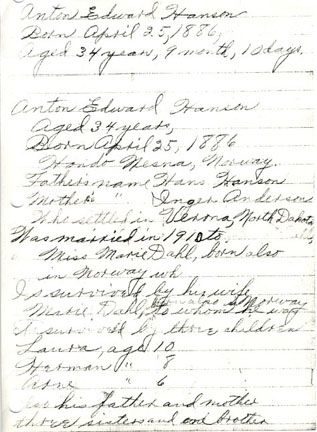 Anton Edward Hanson
Born April 25, 1886,
Aged 34 years, 9 month, 10 days.
Anton Edward Hanson
Aged 34 years,
Born April 25, 1886
Hande Nesna, Norway.
Fathers name Hans Hanson
Mothers " Inger Anderson
Who settled in Verona, North Dakota
Was married in 1910 to
Miss Marie Dahl, born also
in Norway wh
Is survived by his wife
Marie Dahl, Norway
to whom he was
is survived by three children
Laura, age 10
Herman " 8
Arne " 6
his father and mother
three sisters and one brother